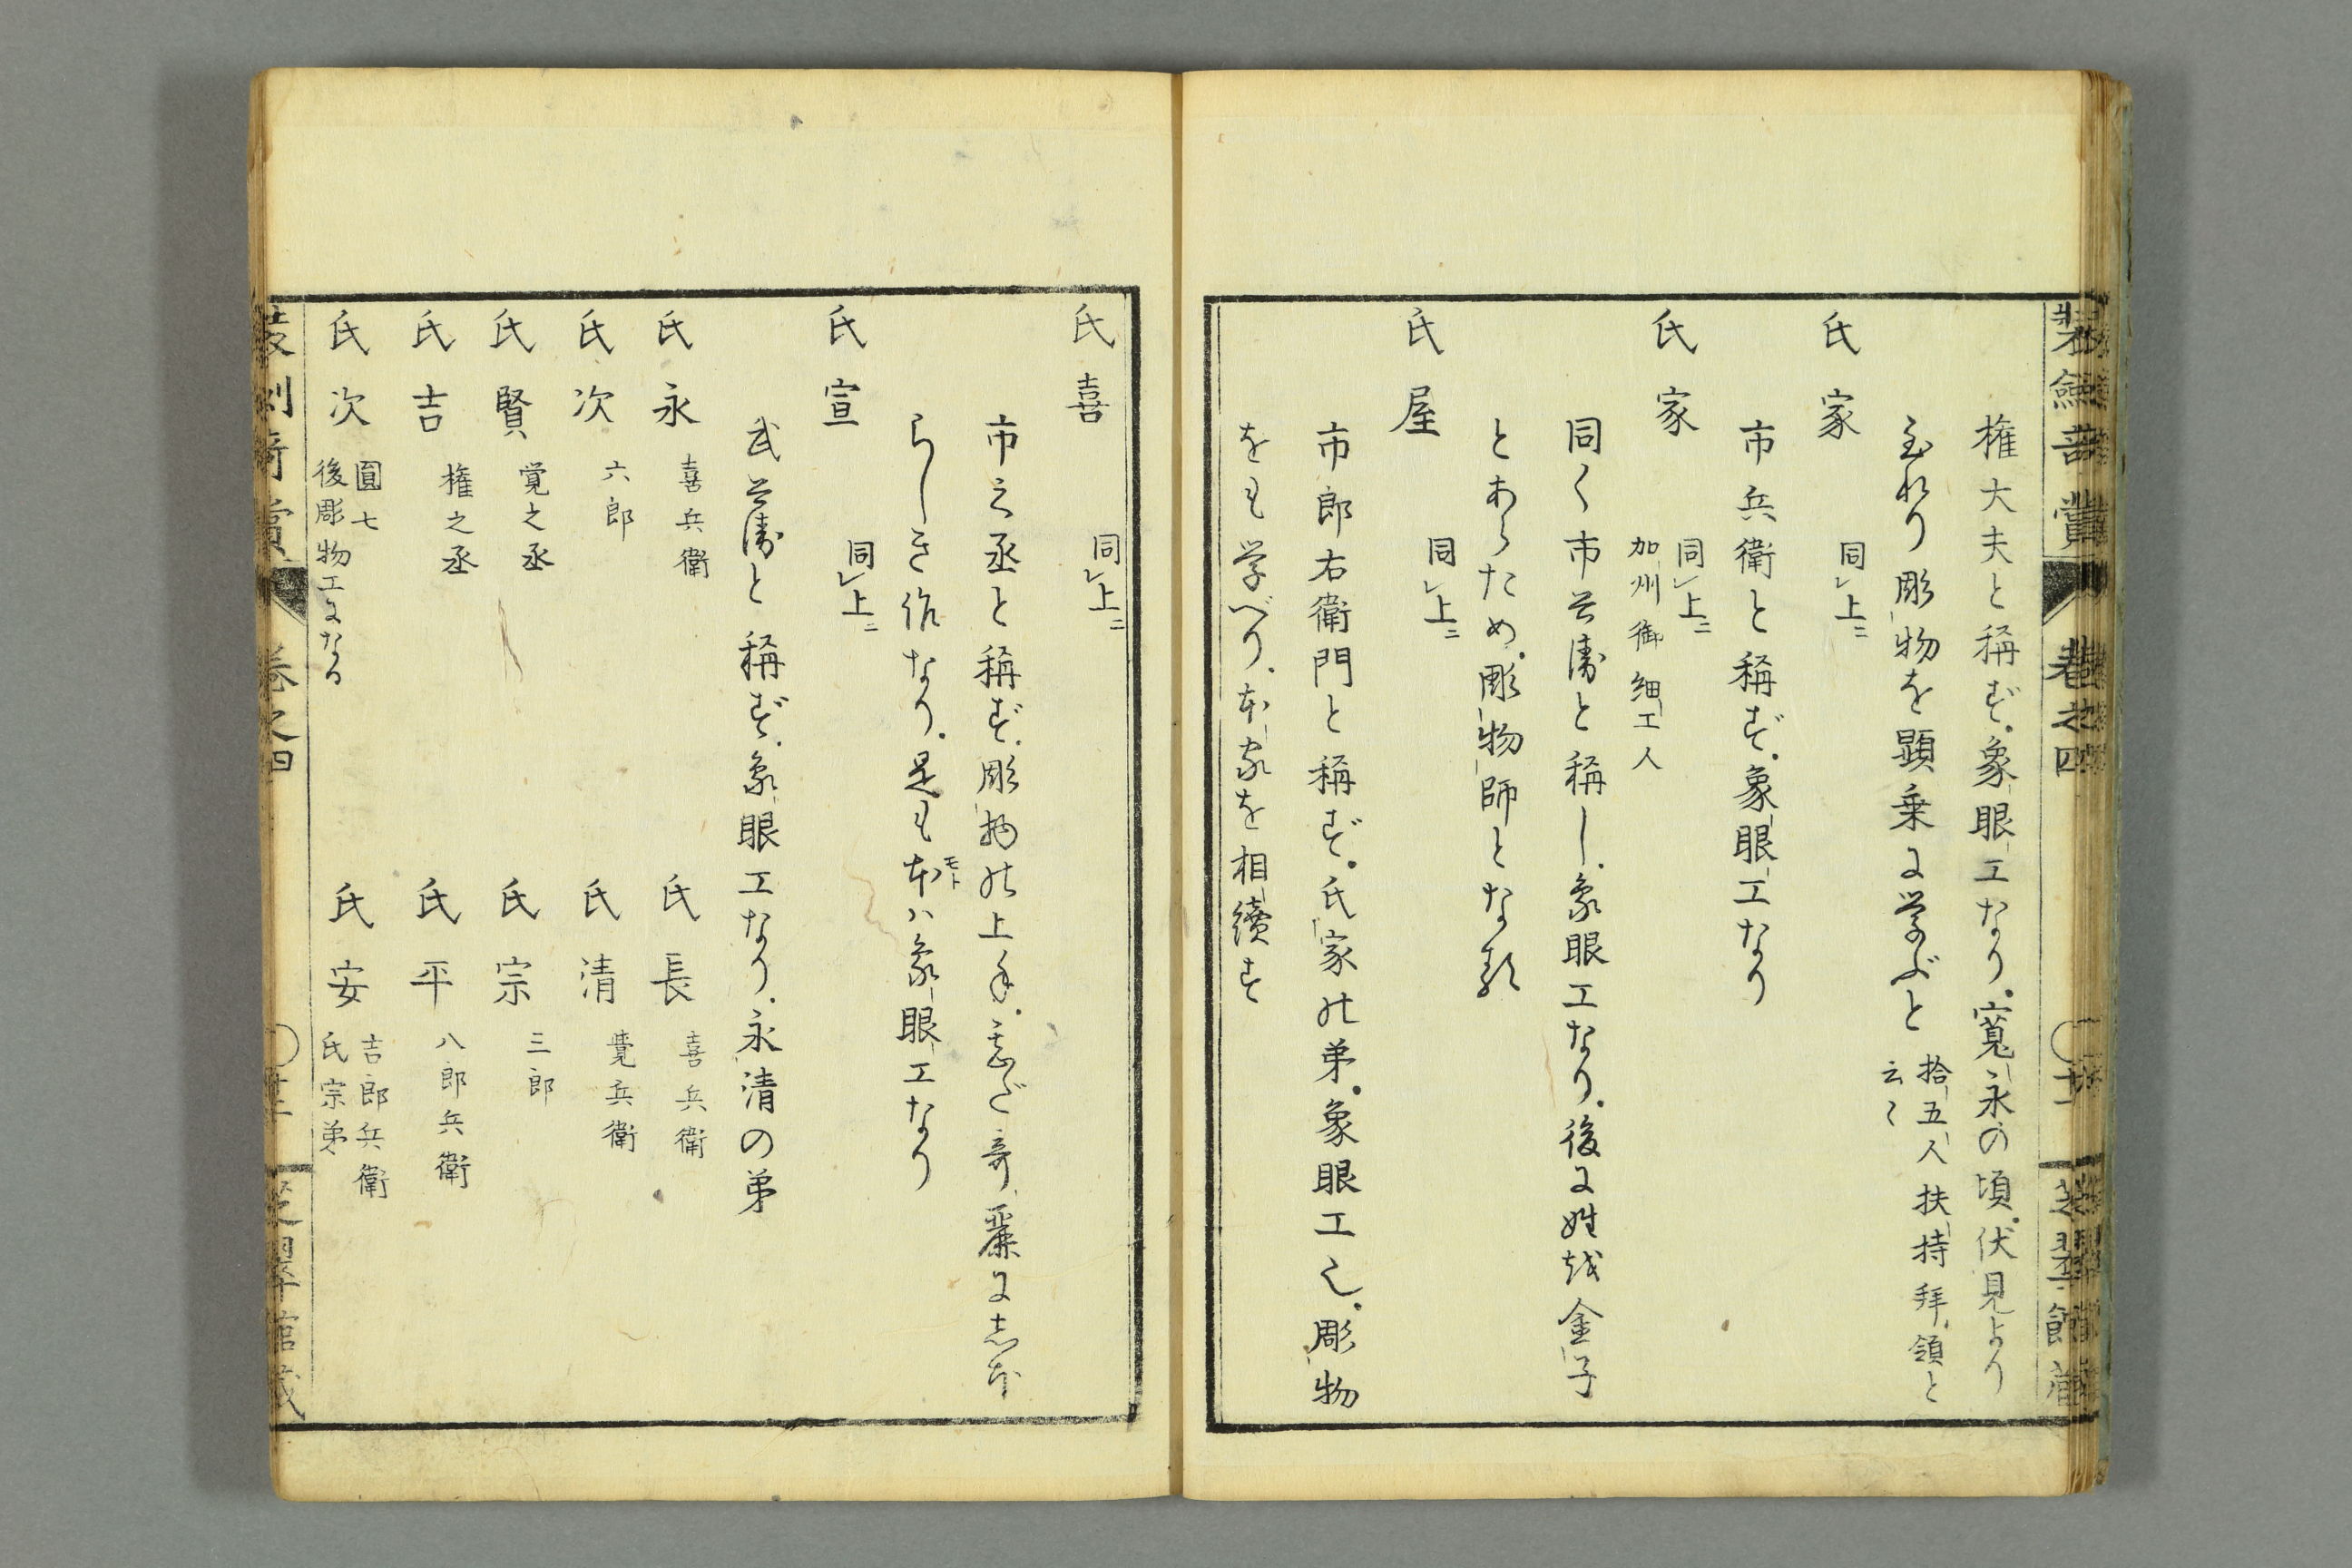 権大夫と称ず。象眼工なり。寛永の頃。伏見より
至れり彫物を顕乗に学ぶと 拾五人扶持拝領と
云々
氏家 同上ニ
市兵衛と称ず。象眼工なり
氏家 同上ニ
加州御細工人
同く市兵衛と称し。象眼工なり。後に姓越金子
とあらため。彫物師となる
氏屋 同上ニ
市郎右衛門と称ず。氏家の弟。象眼工也。彫物
をも学べり。本家を相續す
氏喜 同上ニ
市之丞と称ず。彫物の上手。甚だ奇麗にしほ
らしき作なり。是も本ハ象眼工なり
モト
氏宣 同上ニ
武兵衛と称ず。象眼工なり。永清の弟
氏永 喜兵衛 氏長 喜兵衛
氏次 六郎 氏清 覺兵衛
氏賢 覚之丞 氏宗 三郎
氏吉 権之丞 氏平 八郎兵衛
氏次 圓七 後彫物工になる 氏安 吉郎兵衛 氏宗弟
巻之四